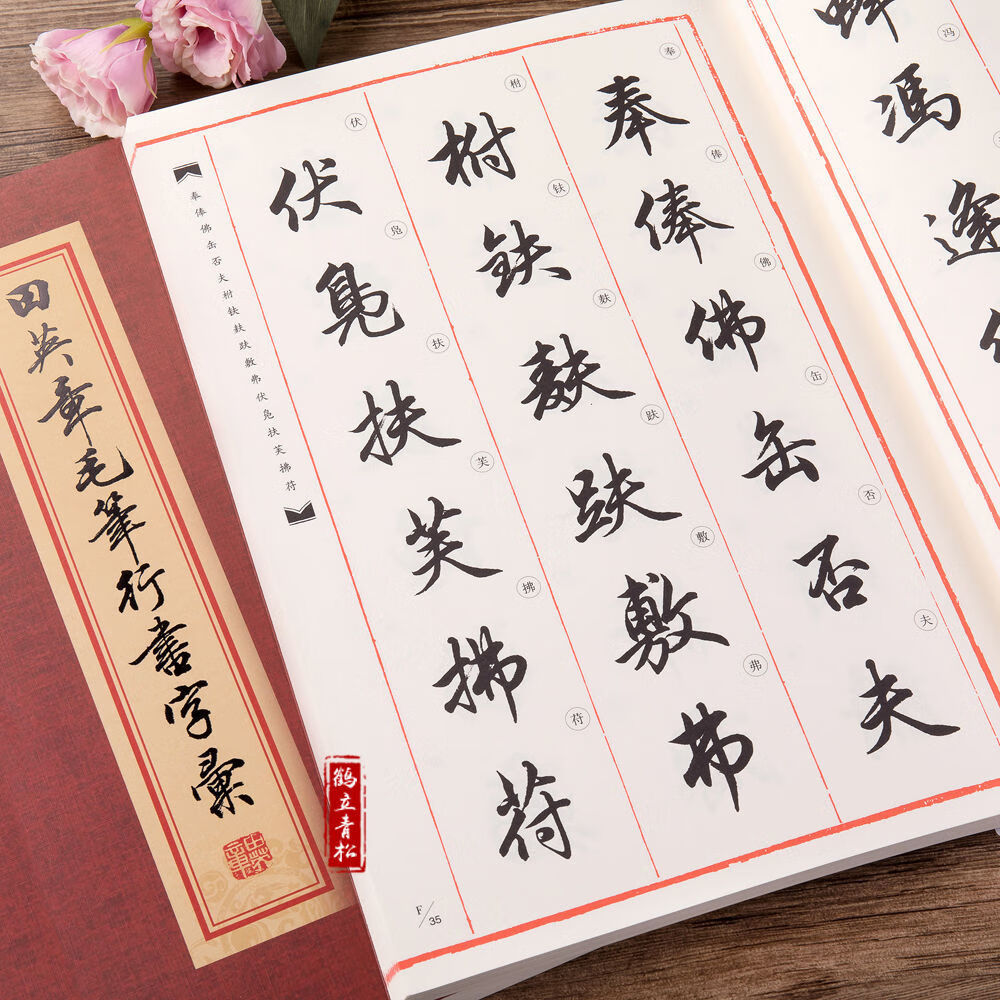 田英章毛筆行書字彙
馮逢
冯
奉俸佛缶否夫
奉俸佛缶否夫
柎鈇麸趺敷弗
柎𫓧麸趺敷弗
伏鳧扶芙拂苻
伏凫扶芙拂苻
奉俸佛缶否夫柎𫓧麸趺敷弗伏凫扶芙拂苻
F/35
鹤立青松